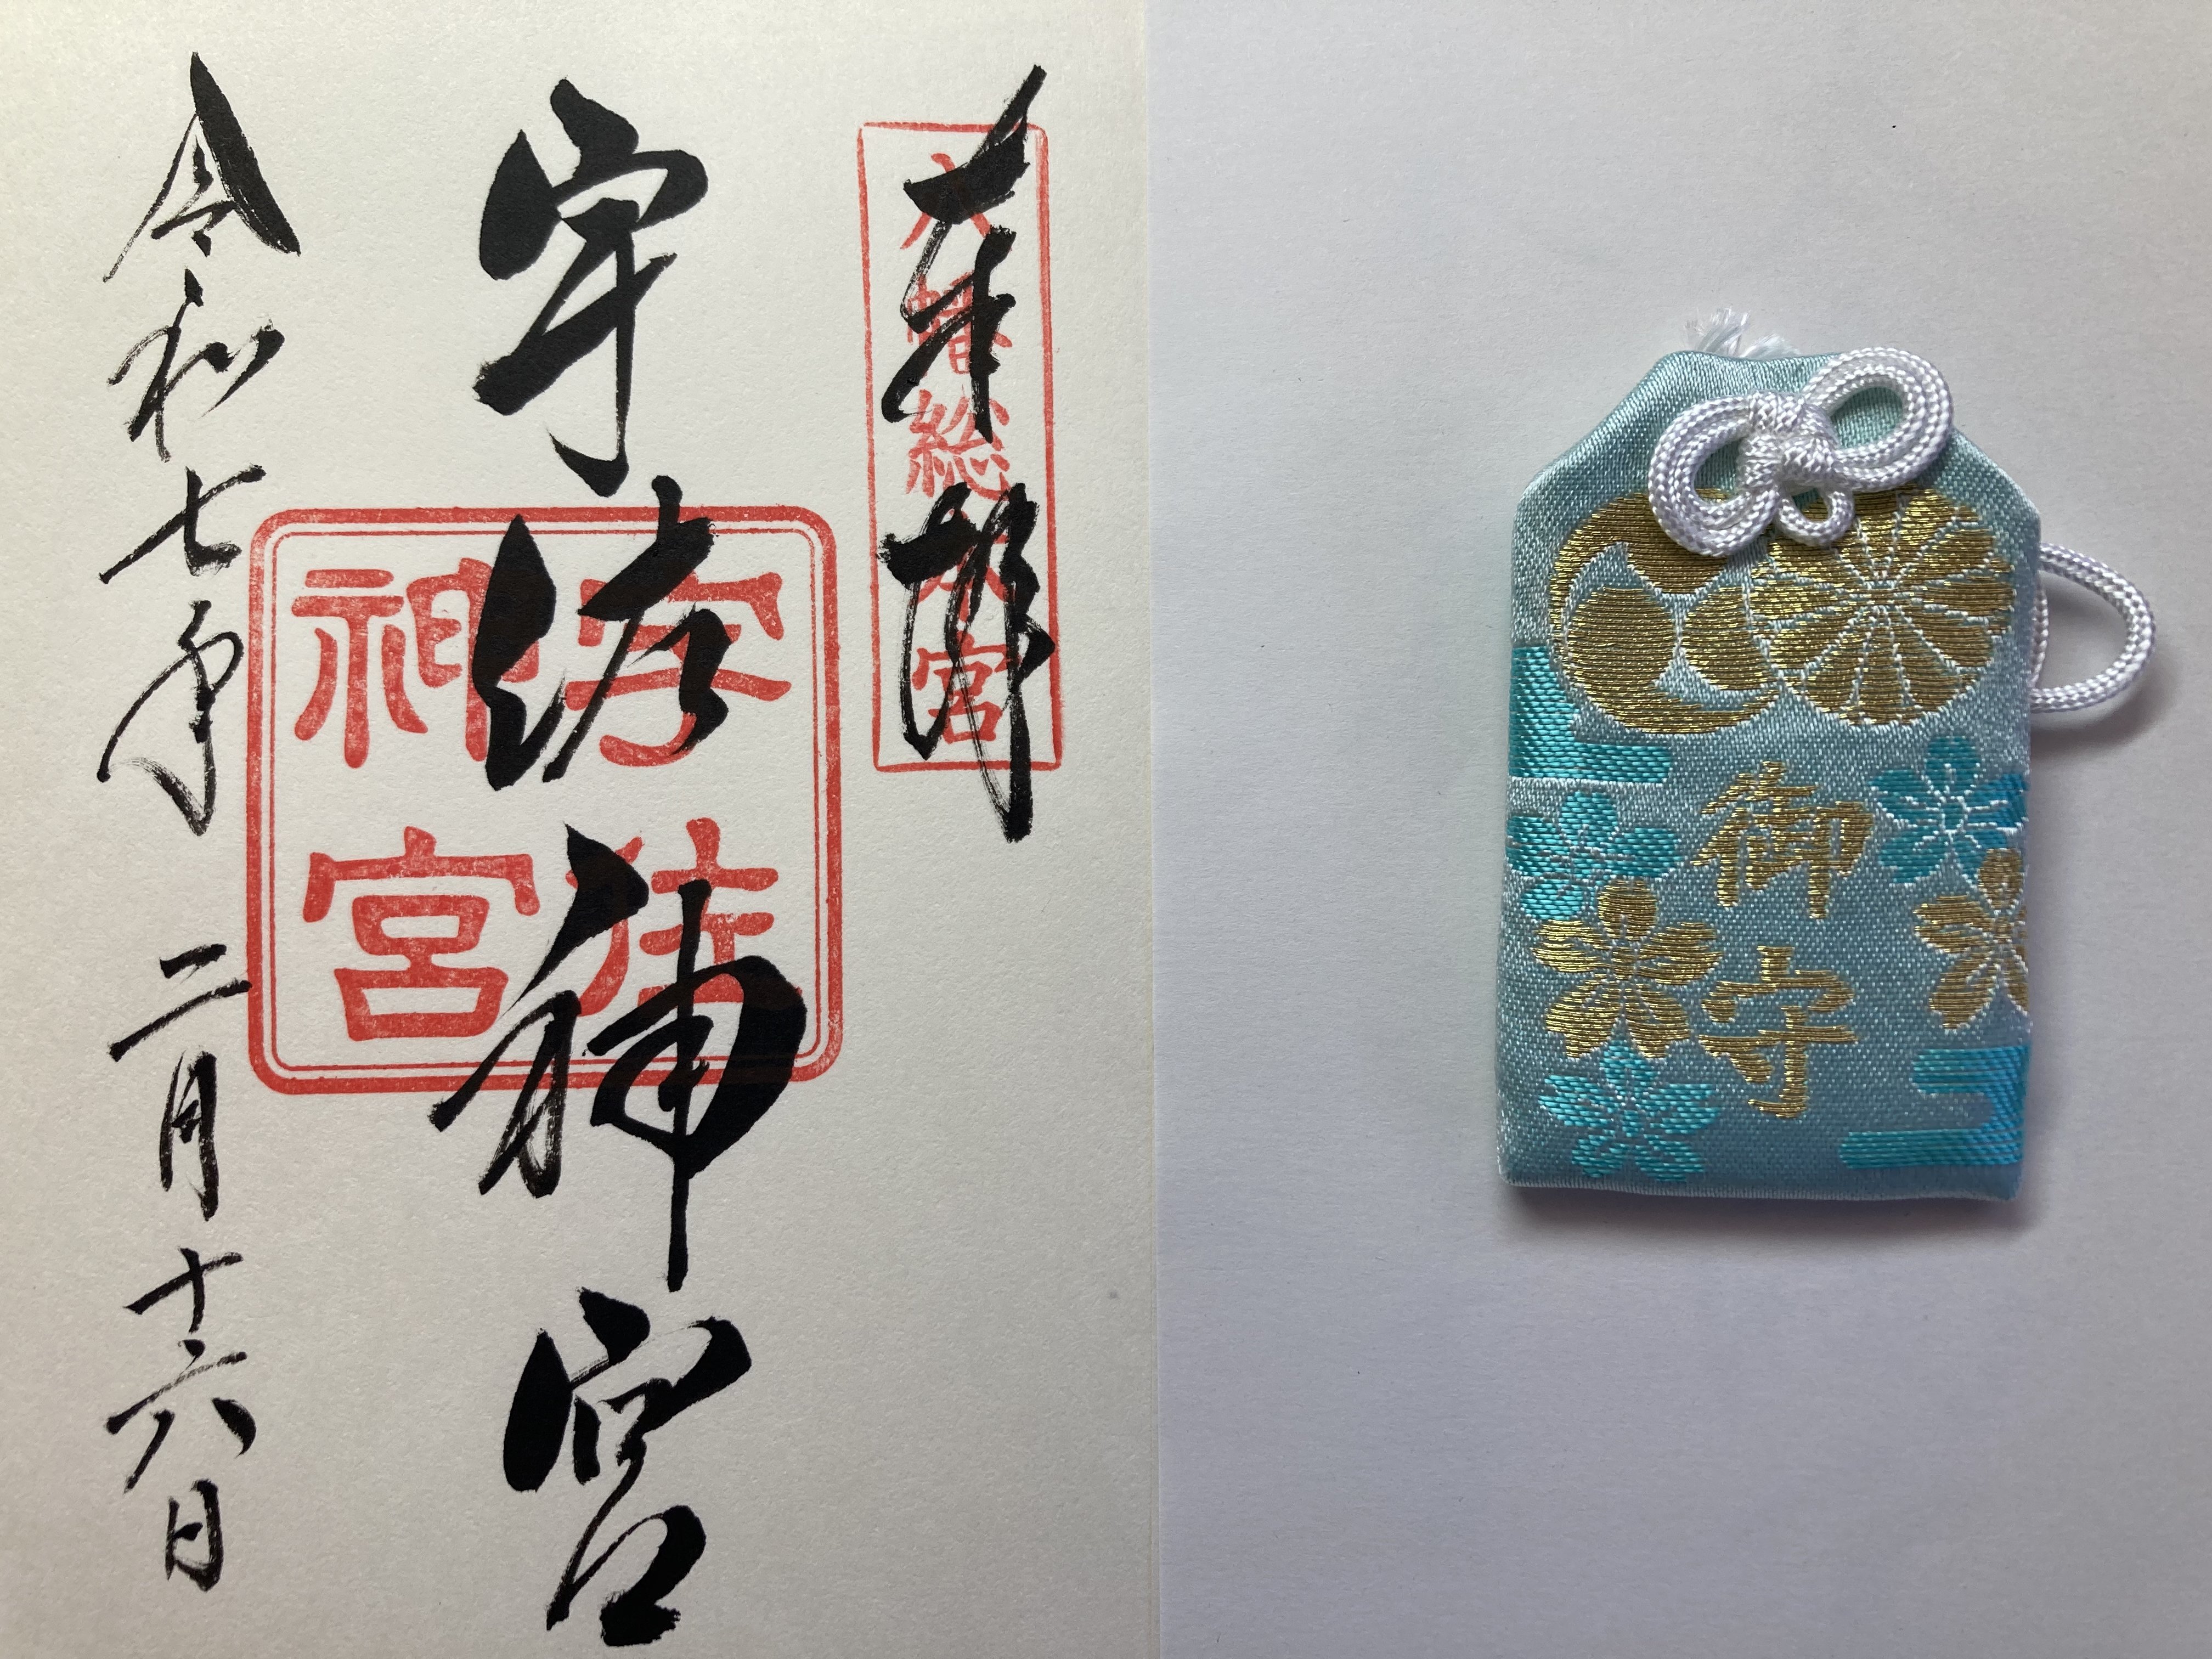 奉拝
八幡総本宮
宇佐神宮
宇佐神宮
令和七年二月十六日
御守